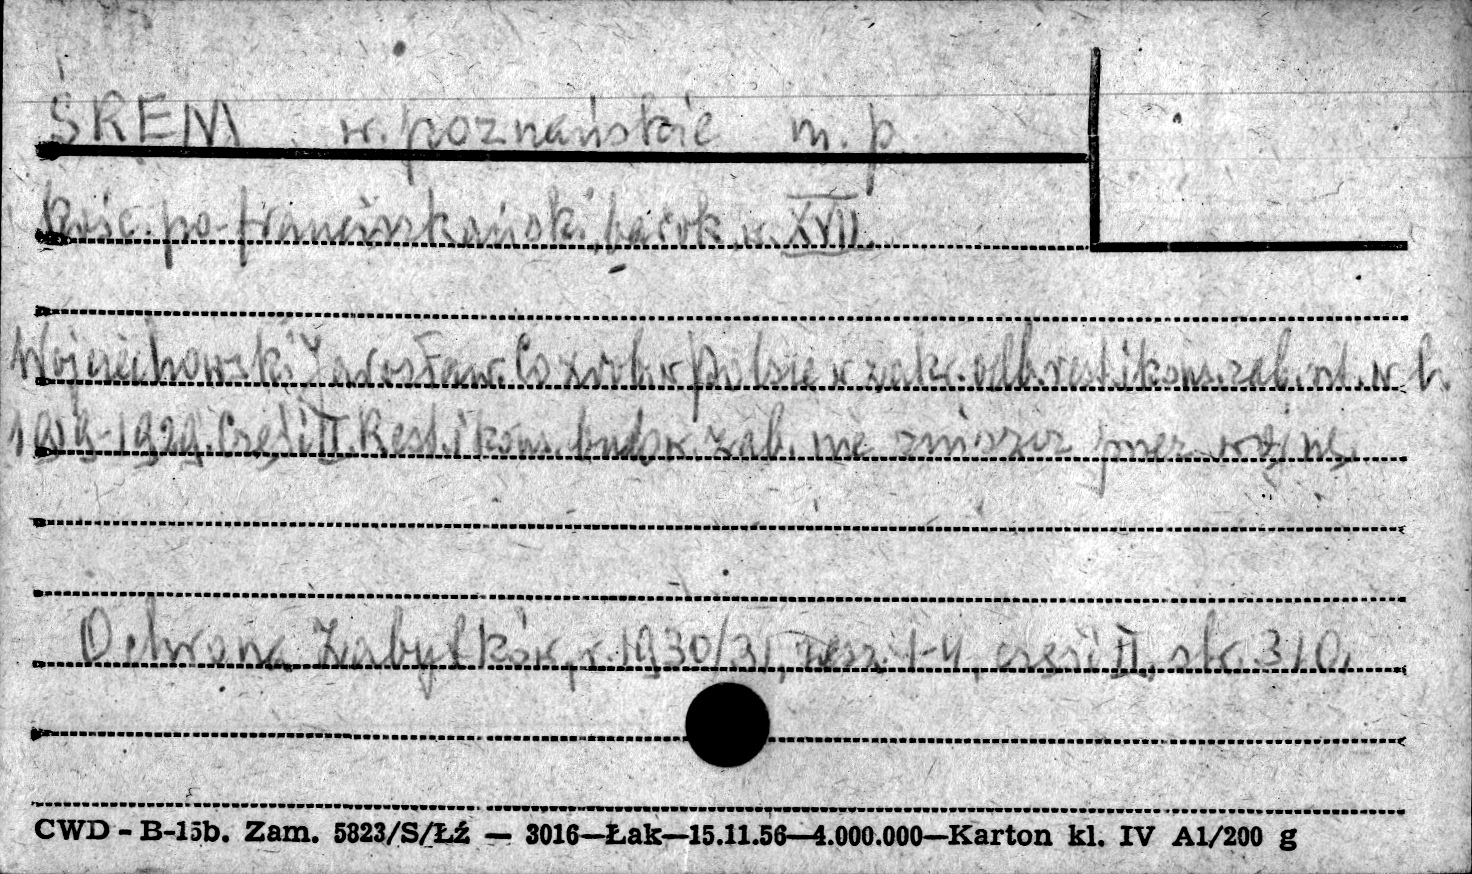 ŚREM w. poznańskie m. p.
Kośc. po-franciszkański, barok, w. XVII.
Wojciechowski Jarosław. Co zrob. w Polsce w zakr. odb. rest. i kons. zab. szt. w l.
1919-1929. Część II. Rest. i kons. budow. zab. nie zniszcz. przez wojnę.
Ochrona Zabytków, r. 1930/31, zesz. 1-4, część II, str. 310.
CWD - B-15b. Zam. 5823/S/Łź — 3016—Łak—15.11.56—4.000.000—Karton kl. IV A1/200 g